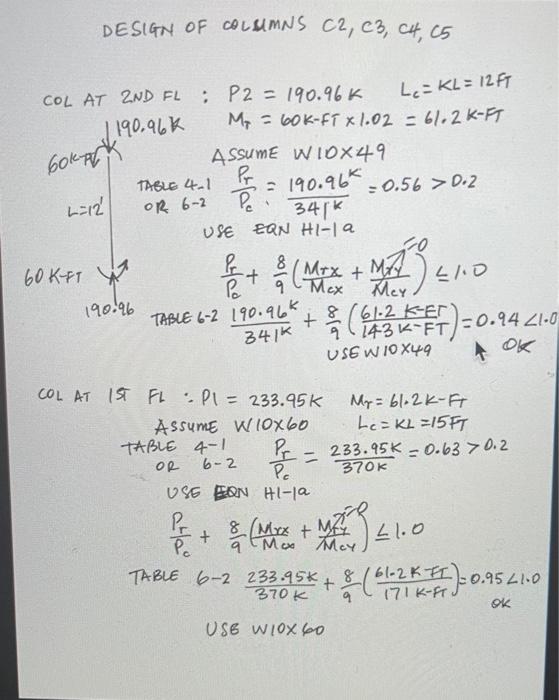 DESIGN OF COLUMNS C2, C3, C4, C5
COL AT 2ND FL : P2 = 190.96K Lc = KL = 12FT
190.96K Mr = 60K-FT x 1.02 = 61.2 K-FT
60K-FT ASSUME W10X49
TABLE 4-1 Pr/Pc = 190.96K/341K = 0.56 > 0.2
OR 6-2
L=12'
USE EQN H1-1a
60 K-FT Pr/Pc + 8/9 (Mrx/Mcx + Mry/Mcy) ≤ 1.0
=0
190.96 TABLE 6-2 190.96K/341K + 8/9 (61.2 K-FT/143 K-FT) = 0.94 < 1.0
USE W10X49 OK
COL AT 1ST FL : P1 = 233.95K Mr = 61.2K-FT
ASSUME W10X60 Lc = KL = 15FT
TABLE 4-1 Pr/Pc = 233.95K/370K = 0.63 > 0.2
OR 6-2
USE EQN H1-1a
=0
Pr/Pc + 8/9 (Mrx/Mcx + Mry/Mcy) ≤ 1.0
TABLE 6-2 233.95K/370K + 8/9 (61.2 K-FT/171 K-FT) = 0.95 < 1.0
OK
USE W10X60